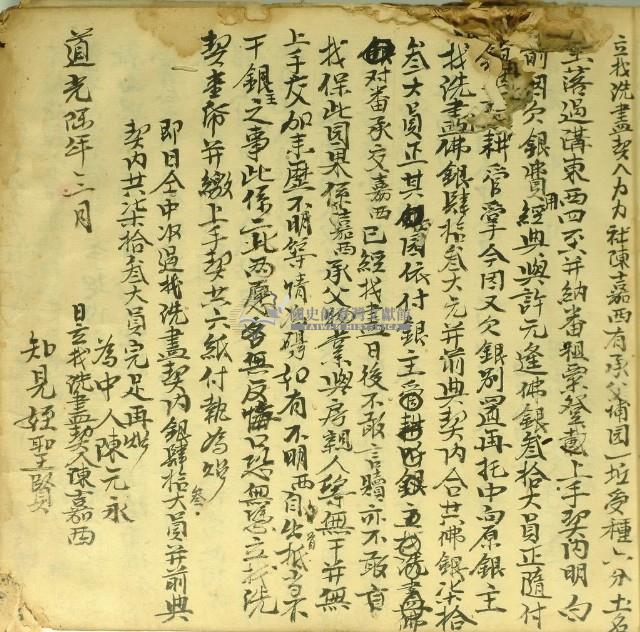 立找洗盡契人力力社陳嘉西有承父埔園一坵受種六分土名
落過溝東西四至并納番租粟登載上手契內明白
前因欠銀費用經典與許元逢佛銀叁拾大員正隨付
耕管掌今因又欠銀別置再托中向原銀主
找洗盡佛銀肆拾叁大元并前典契內合共佛銀柒拾
叁大員正其園依付銀主
對番承交嘉西已經找盡日後不敢言贖亦不敢言
找保此園果係嘉西承父物業與房親人等無干并無
上手交加來歷不明等情為碍如有不明西自出抵當不
干銀主之事此係二比兩愿各無反悔口恐無憑立找洗
契壹紙并繳上手契共六紙付執為炤
即日仝中收過找洗盡契內銀肆拾叁大員并前典
契內共柒拾叁大員完足再炤
為中人陳元永
道光 年二月 日立找洗盡契人陳嘉西
知見姪聖賢
國史館臺灣文獻館
TAIWAN HISTORICA